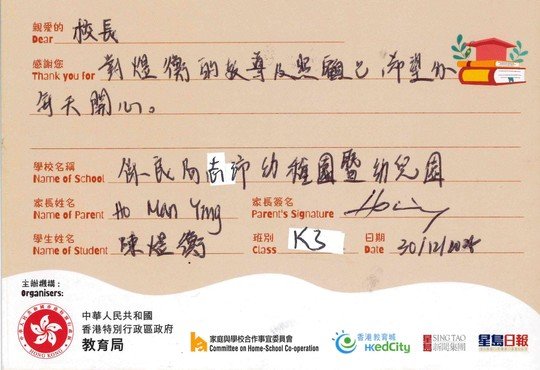 親愛的 校長
Dear
感謝您 對煜衡的教導及照顧，希望你
Thank you for
每天開心。
學校名稱
Name of School 幼稚園暨幼兒園
家長姓名 Ho Man Ying 家長簽名
Name of Parent Parent's Signature
學生姓名 陳煜衡 班別 K3 日期 30/12/2024
Name of Student Class Date
主辦機構：
Organisers:
中華人民共和國
香港特別行政區政府
教育局
HONG KONG
家庭與學校合作事宜委員會
Committee on Home-School Co-operation
香港教育城
HKedCity
星島 SING TAO
新聞集團
星島日報